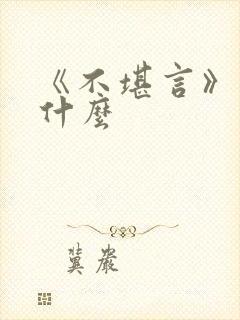 《不堪言》
什麼
冀嚴